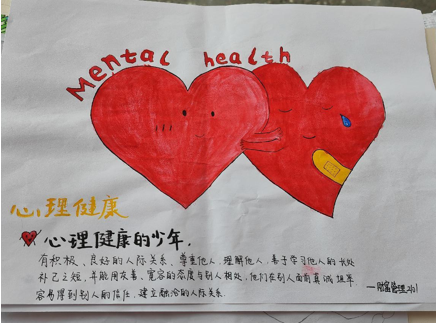 Mental health
心理健康
心理健康的少年.
有积极、良好的人际关系、尊重他人、理解他人、善于学习他人的长处
补己之短、并能用友善、宽容的态度与别人相处,他们在别人面前真诚坦率
容易得到别人的信任,建立融洽的人际关系.